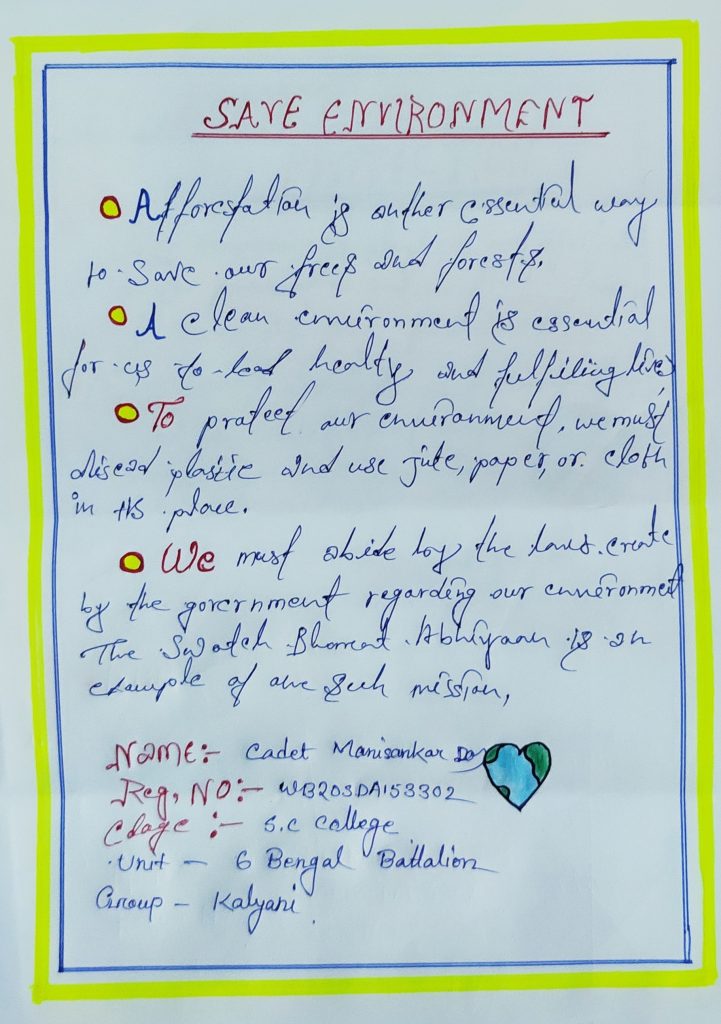 SAVE ENVIRONMENT
Afforestation is another essential way
to save our trees and forests.
A clean environment is essential
for us to lead healty and fulfiling live,
To protect our environment, we must
discad plastic and use jute, paper, or cloth
in its place.
We must abide by the laws create
by the government regarding our environment
The Swatch Bharat Abhiyaan is an
example of one such mission,
NAME:- Cadet Manisankar Das
Reg, NO:- WB20SDA153302
:- S.C College
Unit - 6 Bengal Battalion
Group - Kalyani.